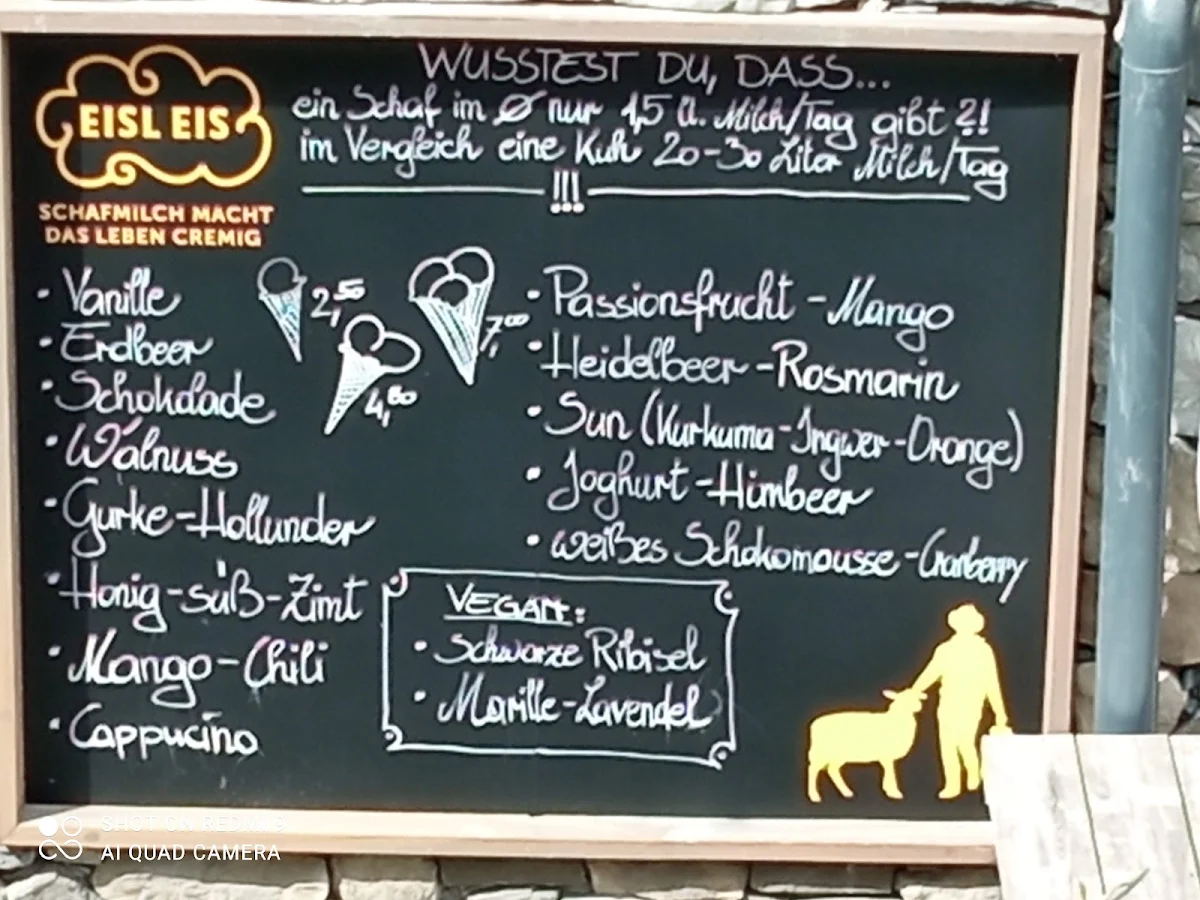 EISL EIS
SCHAFMILCH MACHT
DAS LEBEN CREMIG
WUSSTEST DU, DASS...
ein Schaf im Ø nur 1,5 Lt. Milch/Tag gibt ?!
im Vergleich eine Kuh 20-30 Liter Milch/Tag
!!!
• Vanille
• Erdbeer
• Schokolade
• Walnuss
• Gurke-Hollunder
• Honig-süß-Zimt
• Mango-Chili
• Cappucino
2,50
4,80
7,00
• Passionsfrucht - Mango
• Heidelbeer - Rosmarin
• Sun (Kurkuma-Ingwer-Orange)
• Joghurt - Himbeer
• weißes Schokomousse - Cranberry
VEGAN:
• Schwarze Ribisel
• Marille-Lavendel
SHOT ON REDMI 9
AI QUAD CAMERA